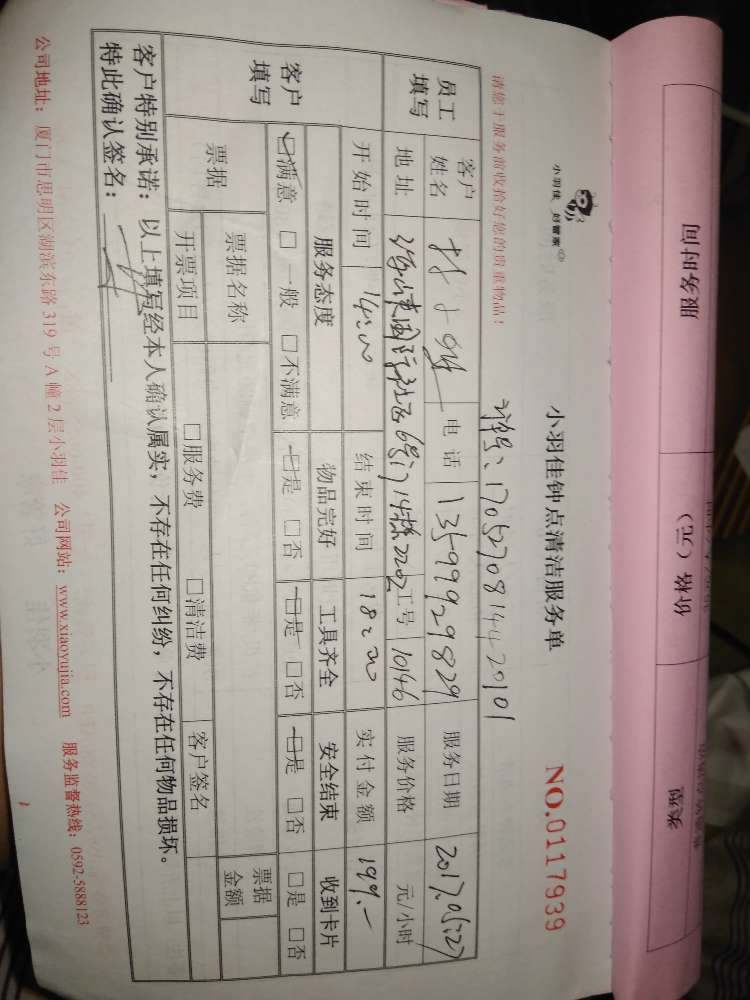 小羽佳 好管家
小羽佳钟点清洁服务单
NO.0117939
请您于服务前收拾好您的贵重物品!
1705270814420101
员工填写
客户姓名
电话 13599929829
服务日期 2017.05.27
地址
工号 10146
服务价格 元/小时
客户填写
开始时间 14:00
结束时间 18:00
实付金额 199.-
服务态度 物品完好 工具齐全 安全结束 收到卡片
☑满意 □一般 □不满意 ☑是 □否 ☑是 □否 ☑是 □否 □是 □否
票据 票据名称 票据金额
开票项目 □服务费 □清洁费 客户签名
客户特别承诺:以上填写经本人确认属实,不存在任何纠纷,不存在任何物品损坏。
特此确认签名:
公司地址:厦门市思明区湖滨东路319号A幢2层小羽佳 公司网站:www.xiaoyujia.com 服务监督热线:0592-5888123
服务时间 价格(元) 类型